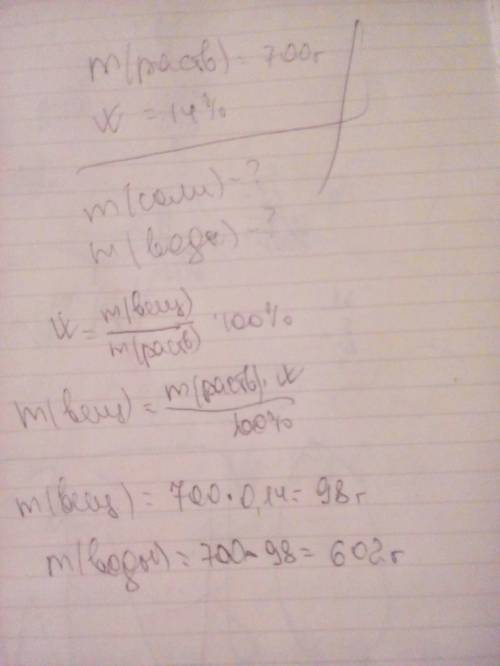 m(раств) = 700г
W = 14%
m(соли) - ?
m(воды) - ?
W = m(вещ) / m(раств) · 100%
m(вещ) = m(раств) · W / 100%
m(вещ) = 700 · 0,14 = 98 г
m(воды) = 700 - 98 = 602 г